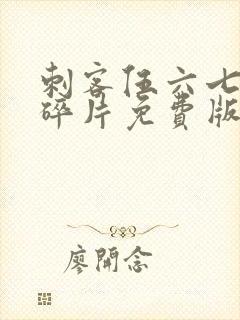 刺客伍六七
碎片免费版
廖開念